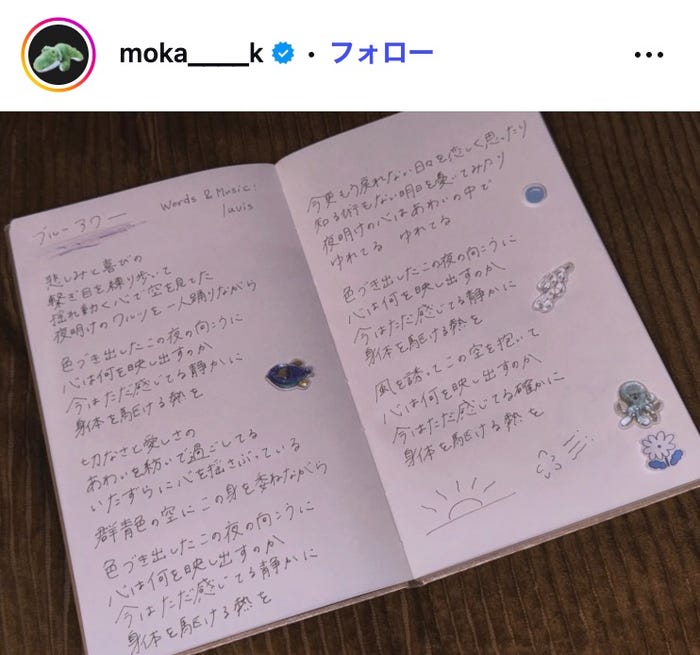 moka_____k • フォロー
ブルーアワー
Words & Music:
luvis
悲しみと喜びの
繋ぎ目を練り歩いて
揺れ動く心で空を見てた
夜明けのワルツを一人踊りながら
色づき出したこの夜の向こうに
心は何を映し出すのか
今はただ感じてる静かに
身体を駆ける熱を
切なさと愛しさの
あわいを紡いで過ごしてる
いたずらに心を揺さぶっている
群青色の空にこの身を委ねながら
色づき出したこの夜の向こうに
心は何を映し出すのか
今はただ感じてる静かに
身体を駆ける熱を
今更もう戻れない日々を恋しく思ったり
知る術もない明日を憂いてみたり
夜明けの心はあわいの中で
ゆれてる ゆれてる
色づき出したこの夜の向こうに
心は何を映し出すのか
今はただ感じてる静かに
身体を駆ける熱を
風を誘ってこの空を抱いて
心は何を映し出すのか
今はただ感じてる確かに
身体を駆ける熱を